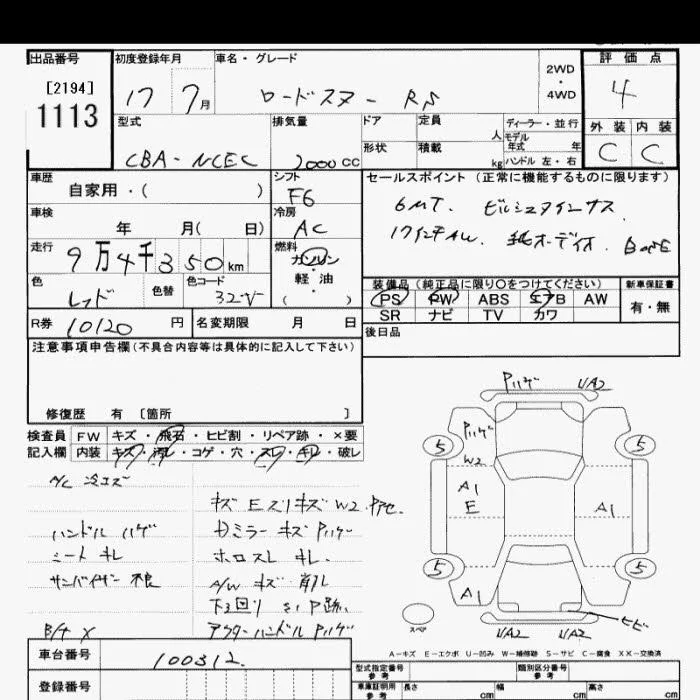 出品番号 初度登録年月 車名・グレード 2WD・4WD 評価点
[2194]
1113
17 7月 ロードスター RS 4
型式 排気量 ドア 定員 人 ディーラー・並行
形状 積載 kg モデル年式 年 ハンドル 左・右
外装 内装
CBA-NCEC 2000 CC C C
車歴 自家用・( ) シフト F6
セールスポイント (正常に機能するものに限ります)
車検 年 月( 日) 冷房 AC
6MT. ビルシュタインサス
走行 9万4千350km 燃料 ガソリン・軽油 ( )
17インチAW. 純オーディオ.
色 レッド 色替 色コード 32V
装備品(純正品に限り○をつけてください) 新車保証書
PS PW ABS エアB AW 有・無
SR ナビ TV カワ
R券 10120 円 名変期限 月 日
後日品
注意事項申告欄(不具合内容等は具体的に記入して下さい)
修復歴 有 [箇所 ]
検査員 FW キズ・飛石・ヒビ割・リペア跡・×要
記入欄 内装 キズ・汚レ・コゲ・穴・スレ・キレ・破レ
A/C 冷エズ
キズ Eスリキズ W2
ハンドル ハゲ
ミラー キズ Pハゲ
シート キレ
ホロスレ キレ.
サンバイザー 不良
A/W キズ 削レ
下回リ サビ P跡.
B/t X
アウターハンドル Pハゲ
Pハゲ UA2
Pハゲ
5 5
W2
A1
E
A1
5 5
A1
スペア
ヒビ
UA2 UA2
A-キズ E-エクボ U-凹み W-補修跡 S-サビ C-腐食 XX-交換済
車台番号 100312.
型式指定番号 参考 類別区分番号 参考
登録番号
車庫証明用 参考 長さ cm 幅 cm 高さ cm